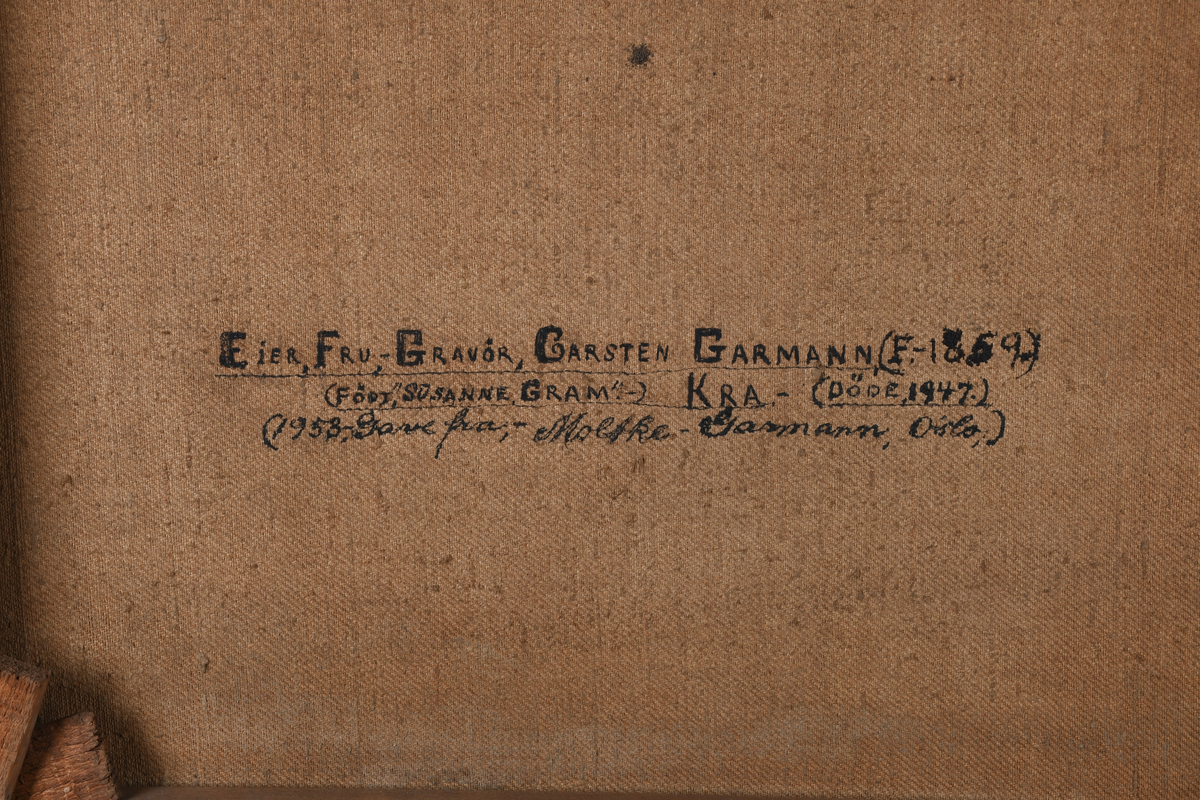 EIER, FRU,- GRAVÓR, CARSTEN GARMANN, (F.-1859.)
(FÖDT, "SUSANNE, GRAM".-) KRA.- (DÖDE, 1947.)
(1953,- Gave fra,- Moltke - Garmann, Oslo,)